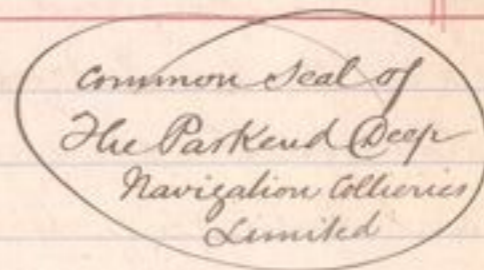 Common Seal of
The Parkend Deep
Navigation Collieries
Limited